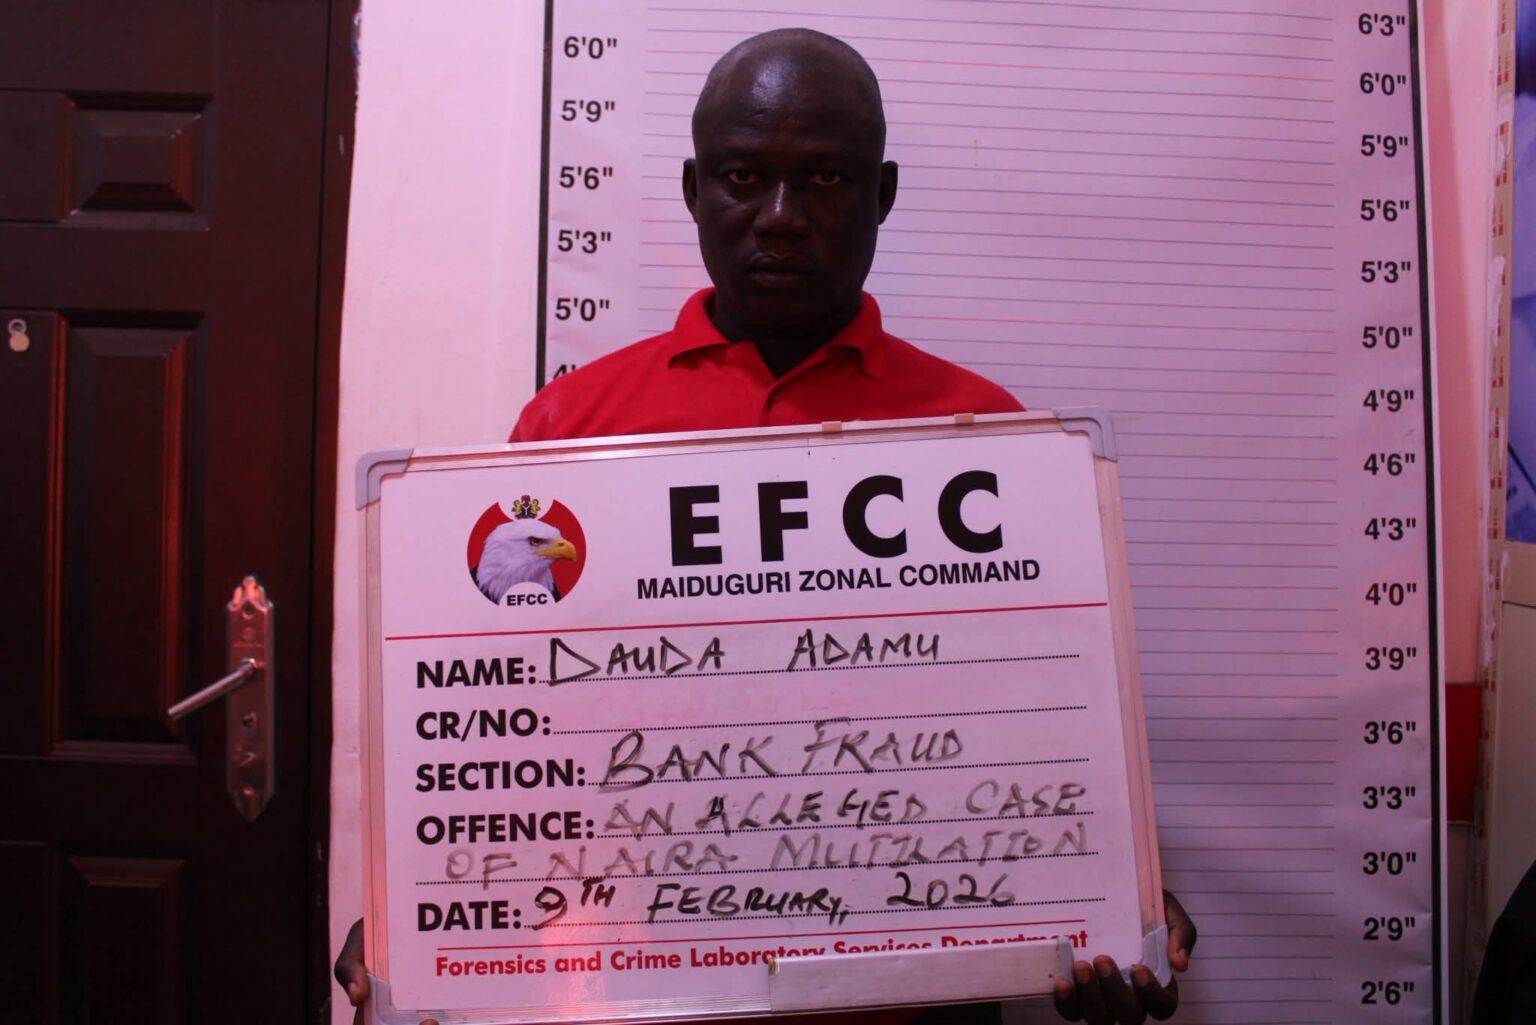 6'0"
5'9"
5'6"
5'3"
5'0"
6'3"
6'0"
5'9"
5'6"
5'3"
5'0"
4'9"
4'6"
4'3"
4'0"
3'9"
3'6"
3'3"
3'0"
2'9"
2'6"
EFCC
EFCC
MAIDUGURI ZONAL COMMAND
NAME: DAUDA ADAMU
CR/NO:
SECTION: BANK FRAUD
OFFENCE: AN ALLEGED CASE
OF NAIRA MUTILATION
DATE: 9TH FEBRUARY, 2026
Forensics and Crime Laboratory Services Department